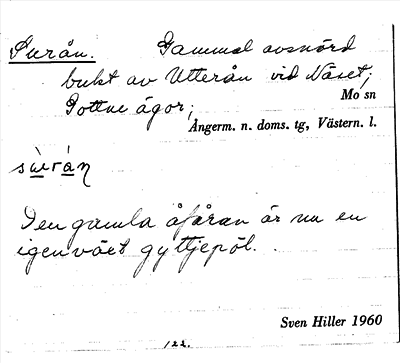 Surån. Gammal avsnörd
bukt av Utterån vid Näset,
Mo sn
Gottne ägor;
Ångerm. n. doms. tg, Västern. l.
Den gamla åfåran är nu en
igenväxt gyttjepöl.
Sven Hiller 1960
122.